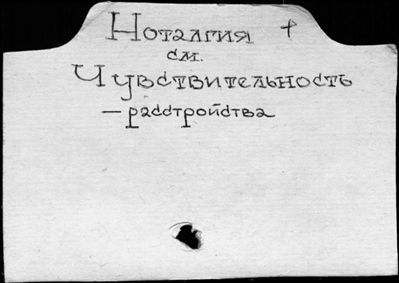 Ноталгия +
см.
Чувствительность
— расстройства